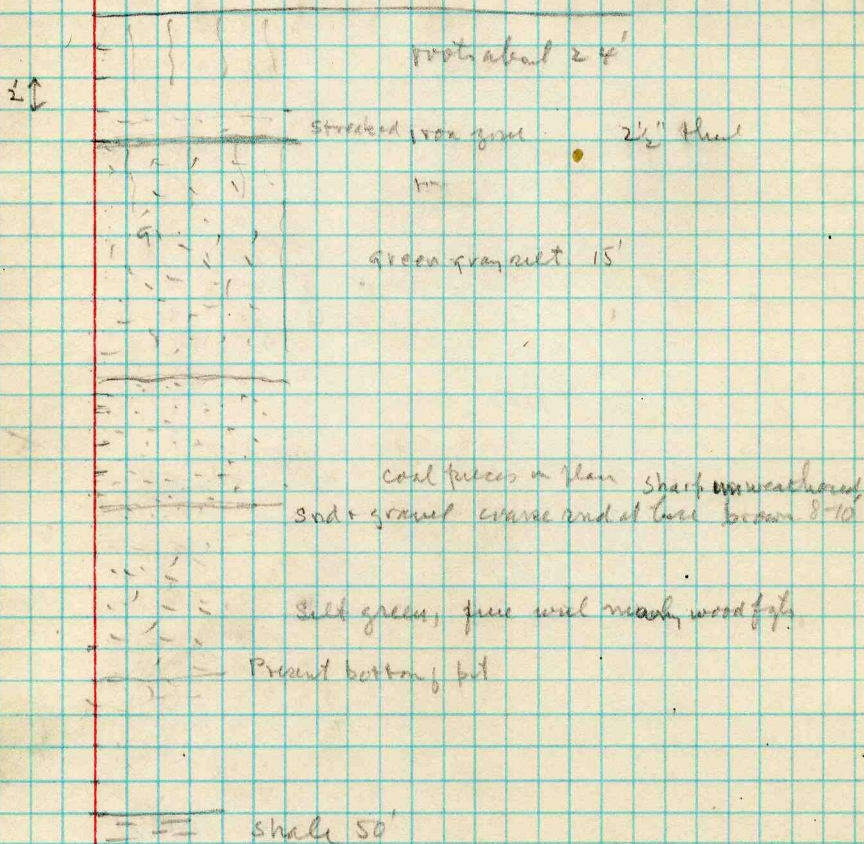 roots about 2 4'
Streaked iron zone 2½"
green gray silt 15'
coal pieces in place sharp unweathered
Snd + gravel coarse and at base brown 8-10'
Silt green, fine with many wood fgts
Present bottom of pit
Shale 50'